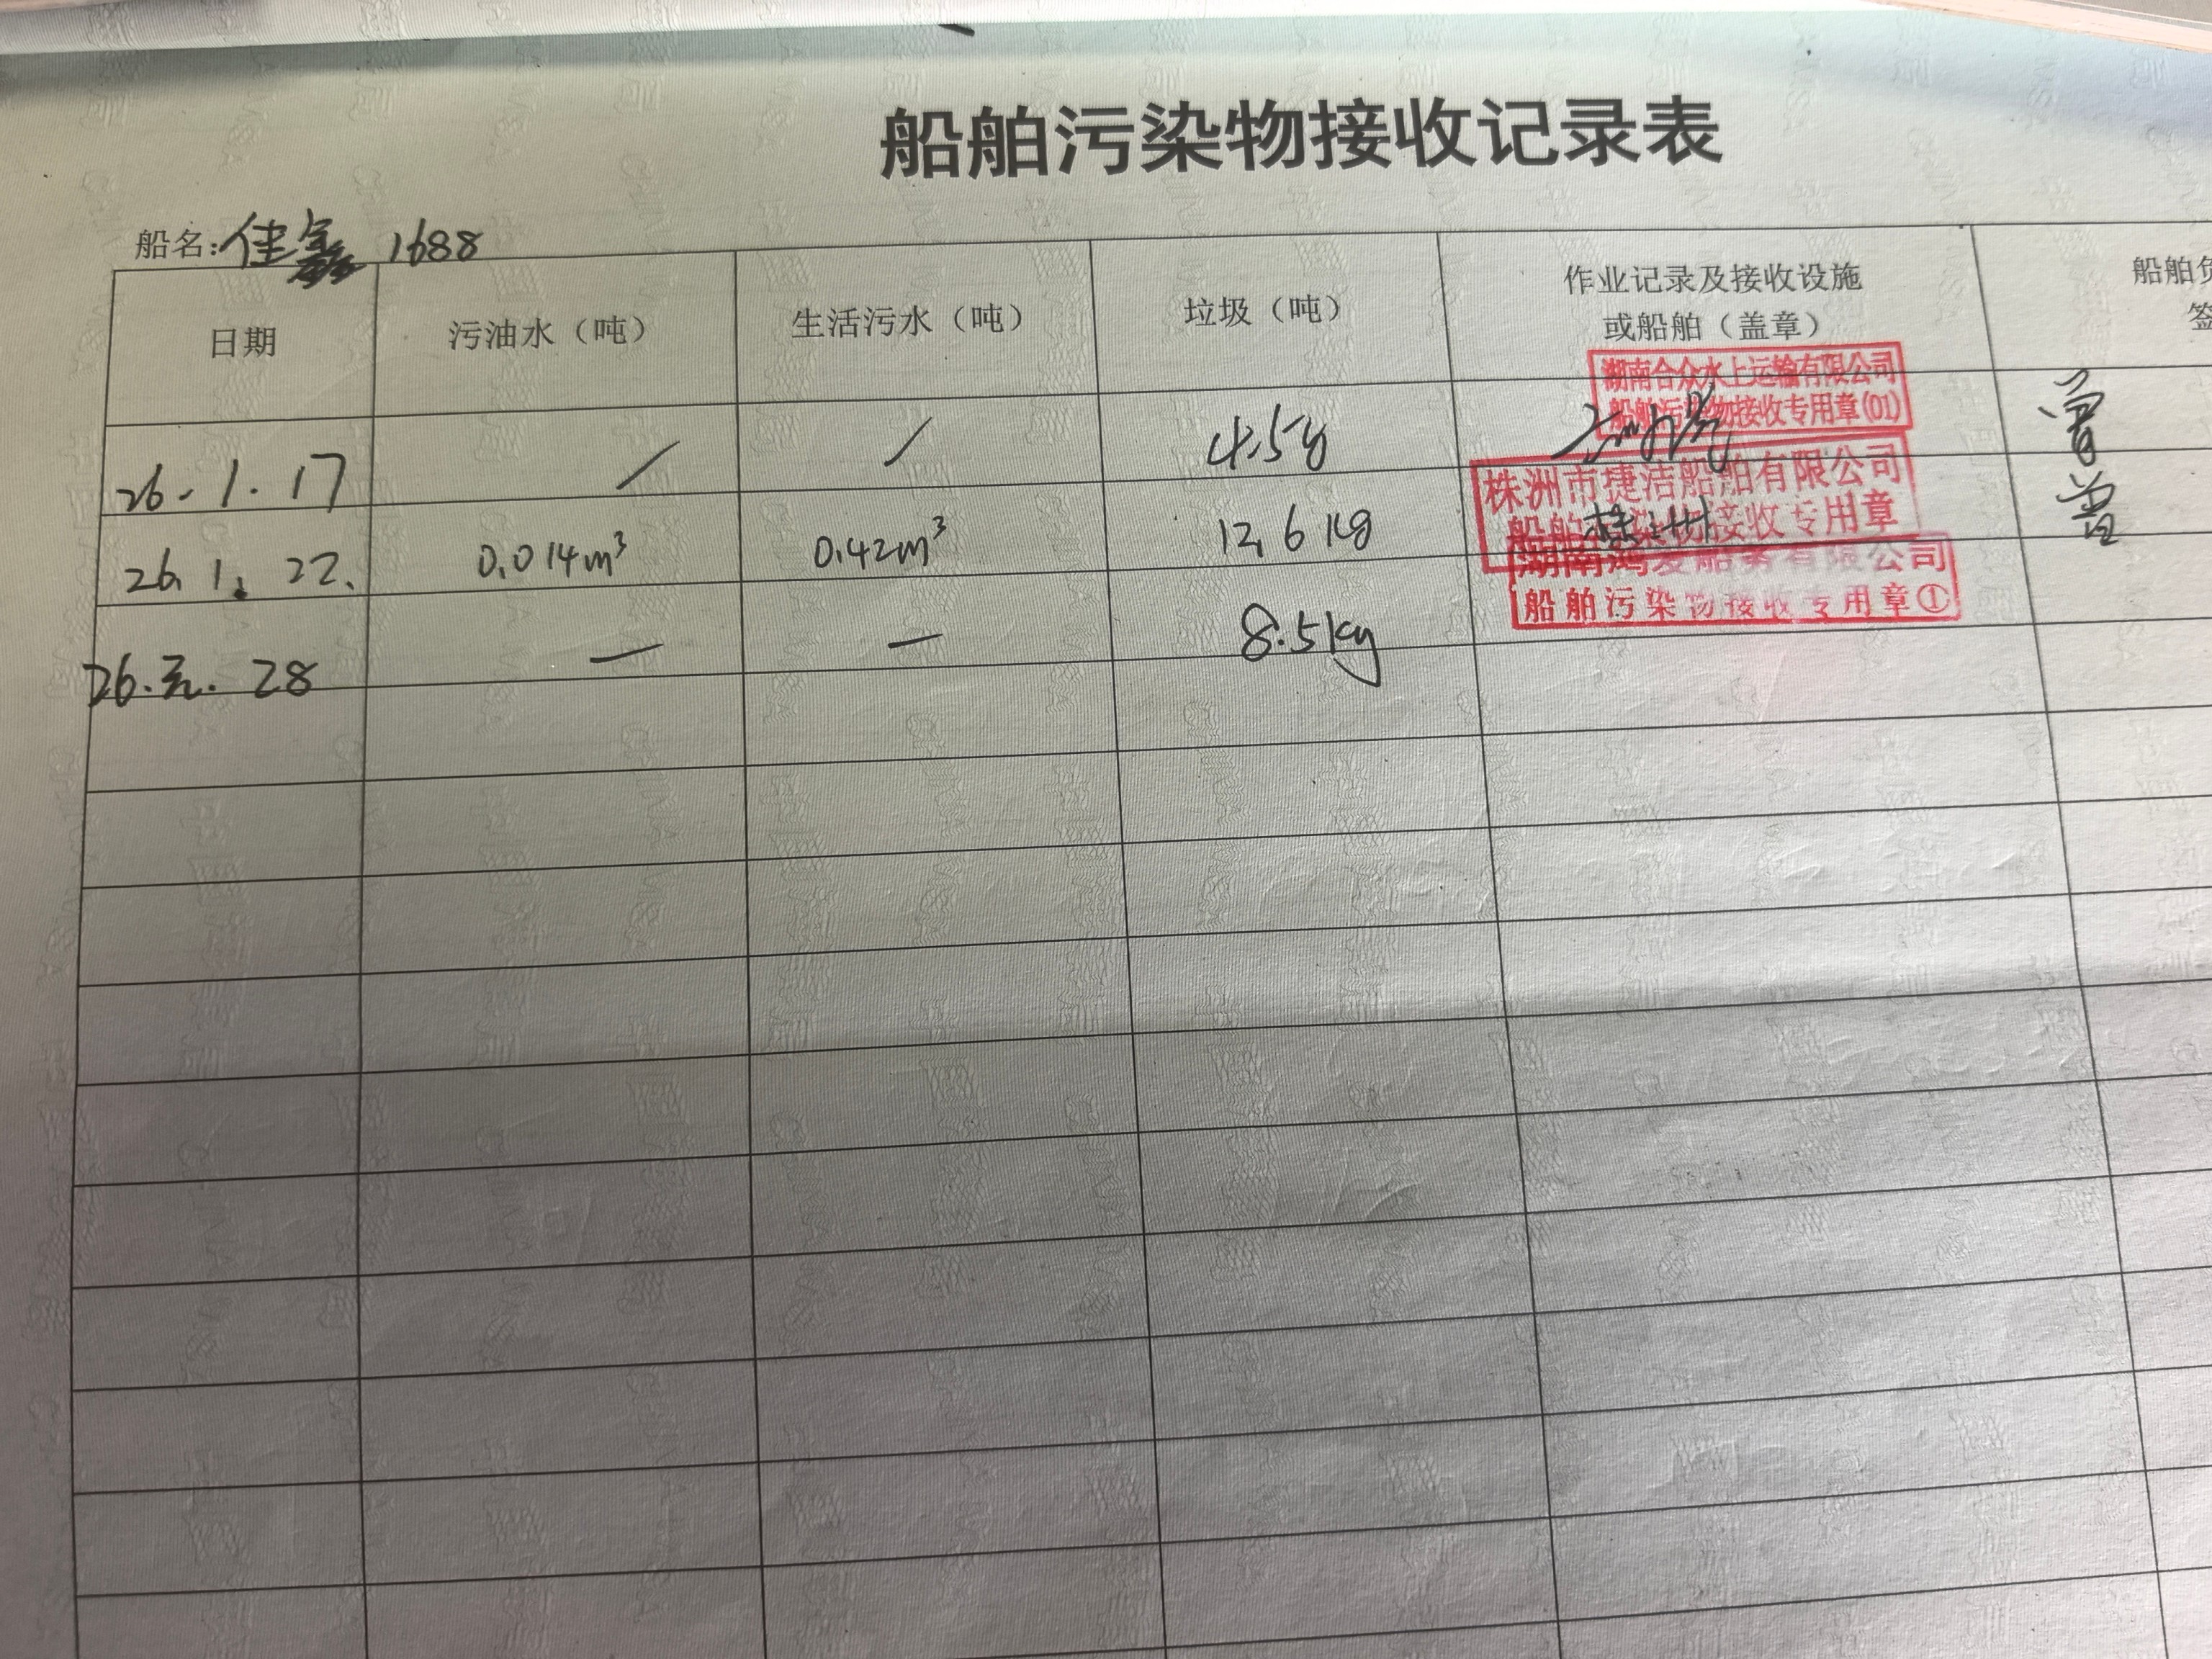 船舶污染物接收记录表
船名:佳鑫 1688
日期 污油水（吨） 生活污水（吨） 垃圾（吨） 作业记录及接收设施
或船舶（盖章） 船舶
签
湖南合众水上运输有限公司
船舶污染物接收专用章(01)
26.1.17 / / 4.5
株洲市捷洁船舶有限公司
船舶污染物接收专用章
26.1.22. 0.014m³ 0.42m³ 12.6kg 株洲
湖南鸿发船务有限公司
船舶污染物接收专用章①
26.元.28 — — 8.5kg